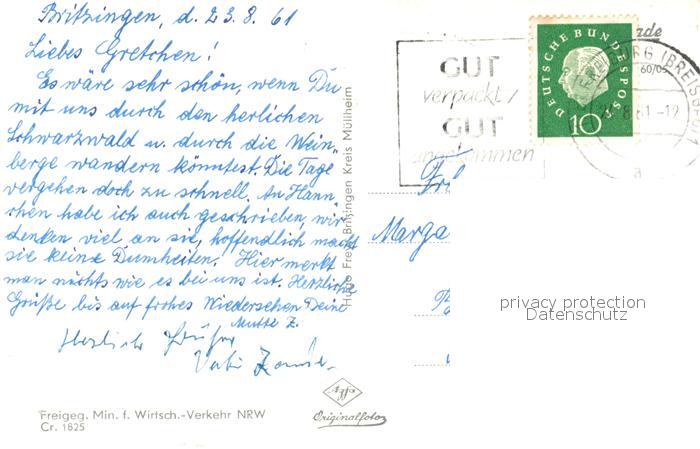 Britzingen, d. 23.8.61
Liebes Gretchen!
Es wäre sehr schön, wenn Du
mit uns durch den herlichen
Schwarzwald u. durch die Wein,
berge wandern könntest. Die Tage
vergehen doch zu schnell. An Hann,
chen habe ich auch geschrieben, wir
denken viel an sie, hoffendlich macht
sie keine Dumheiten. Hier merkt
man nichts wie es bei uns ist. Herzliche
Grüße bis auf frohes Wiedersehen Deine
Mutte Z.
Herzliche Grüße
Freigeg. Min. f. Wirtsch.-Verkehr NRW
Cr. 1825
Hugo Frei, Britzingen Kreis Müllheim
Agfa
Originalfoto
GUT
verpackt,
GUT
angekommen
DEUTSCHE BUNDESPOST
10
60/05
8.61.-19
a
Marga
privacy protection
Datenschutz